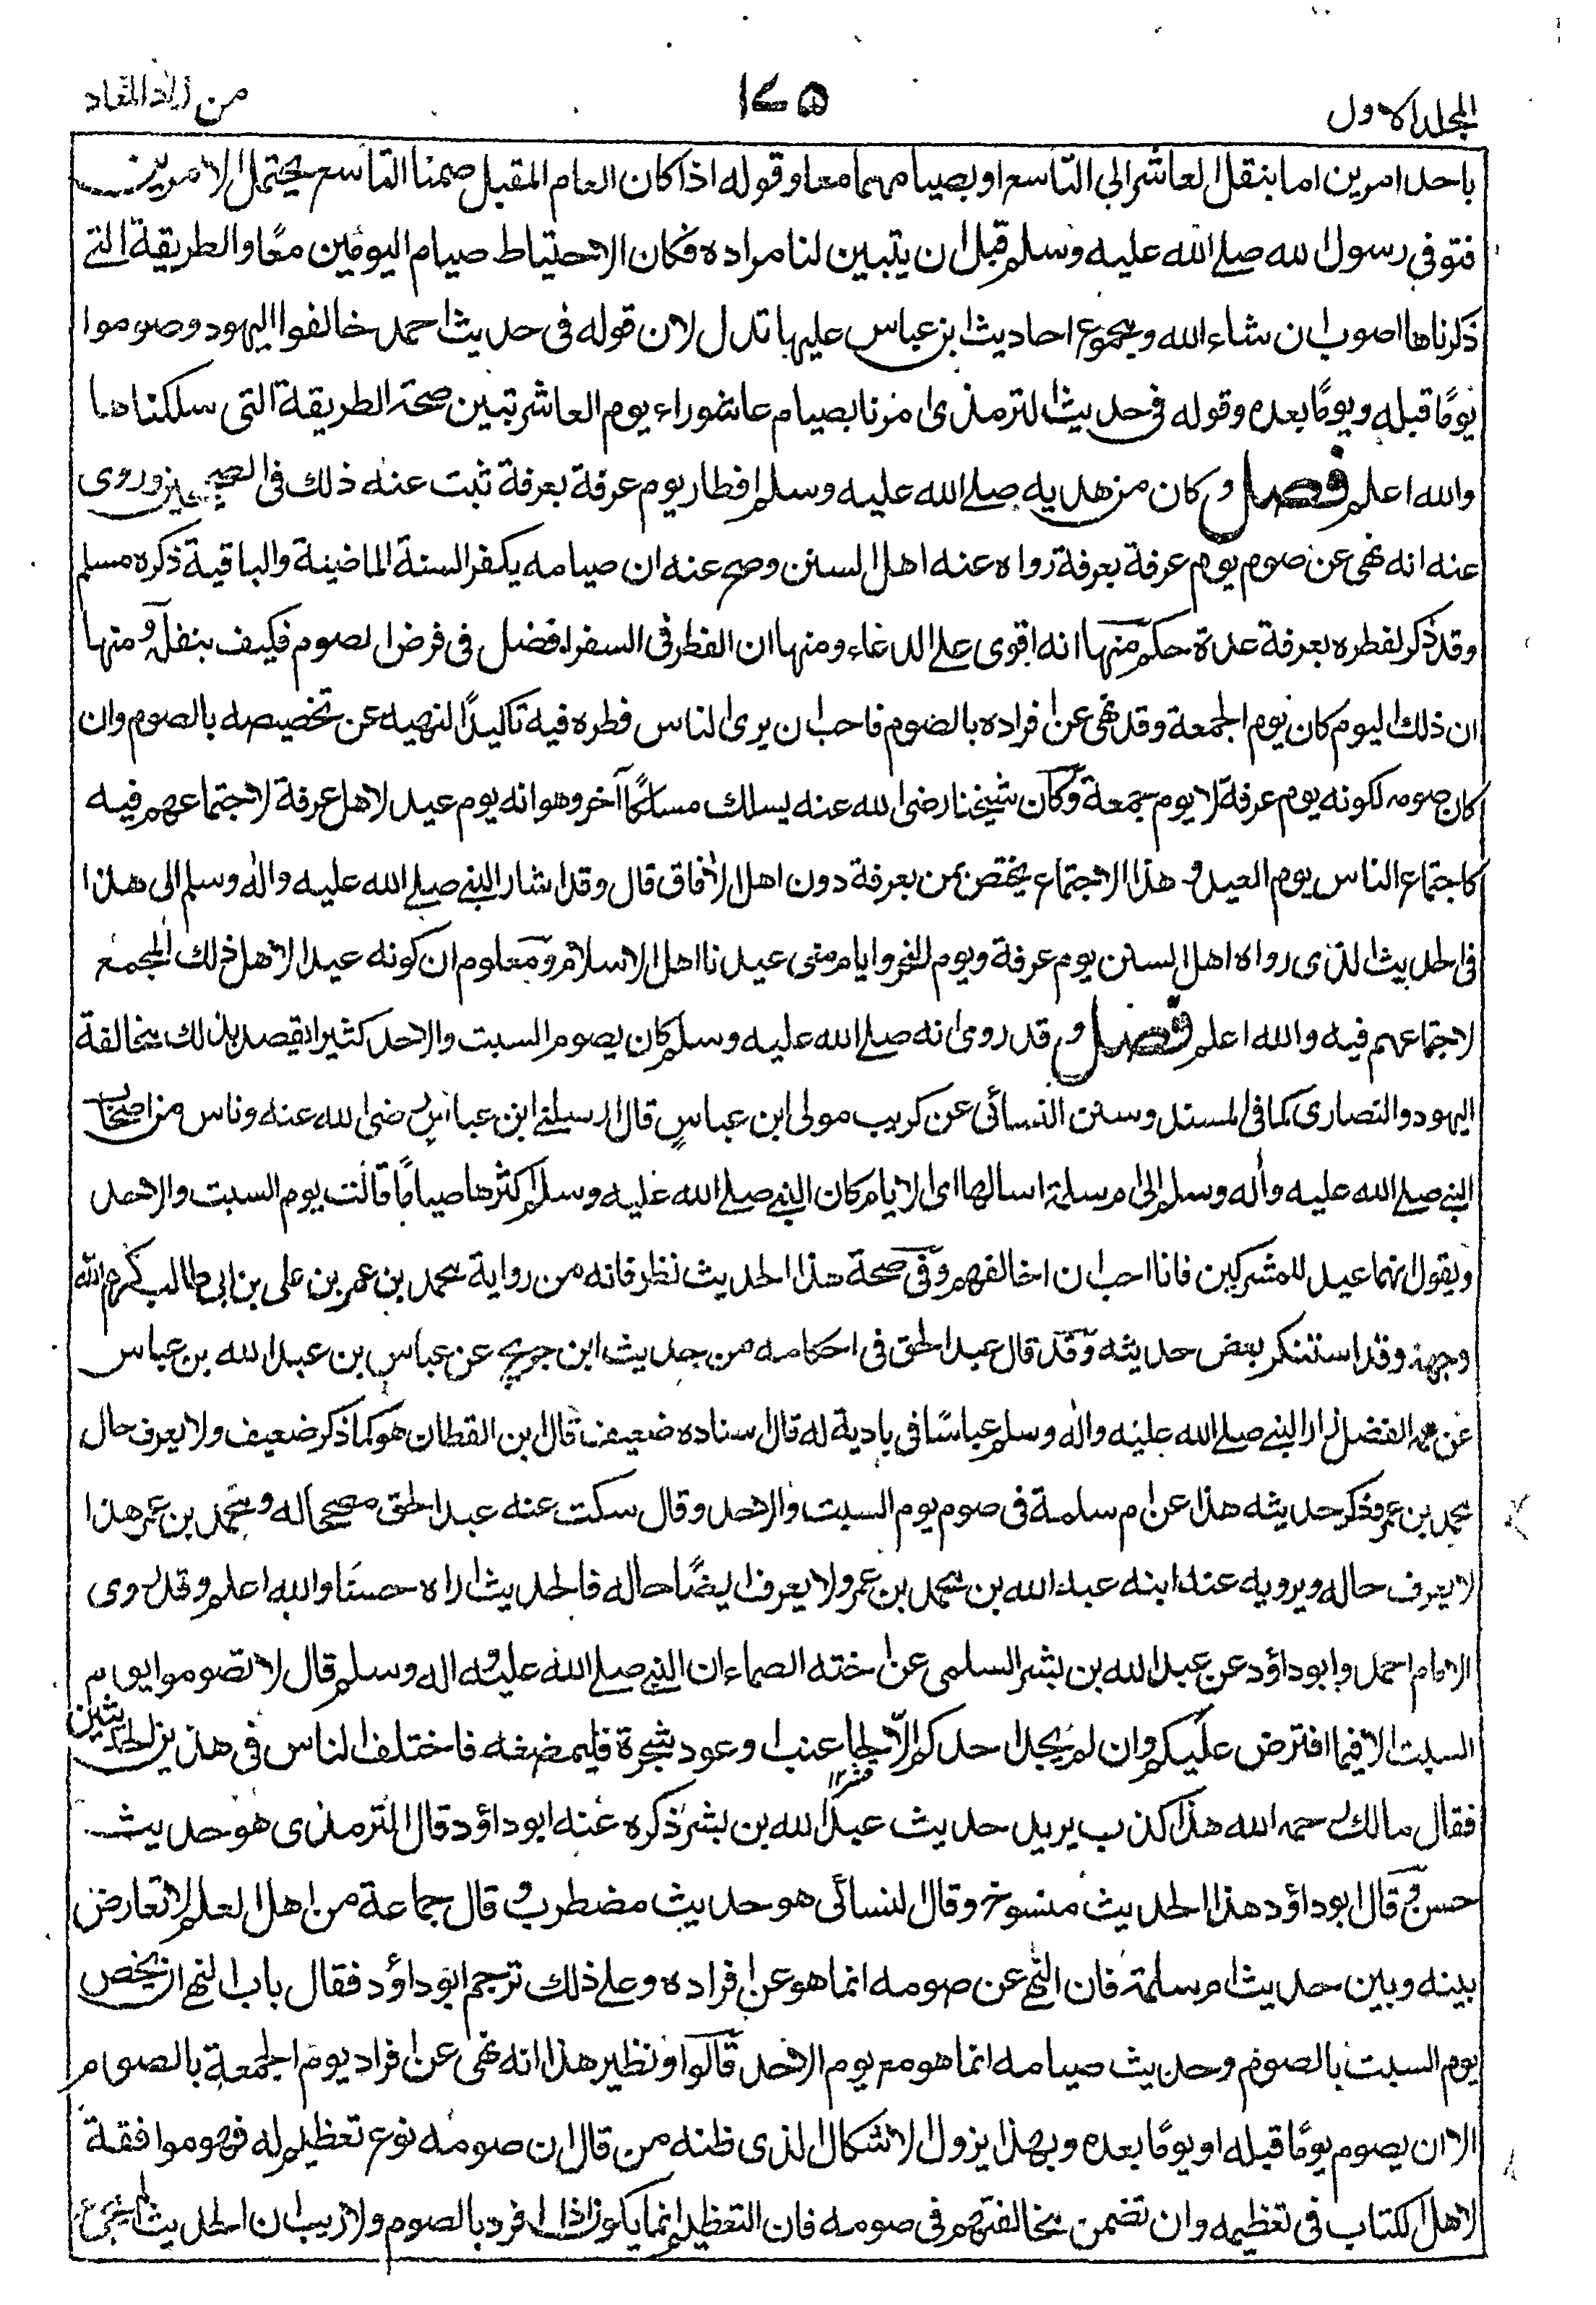 المجلد الاول
١٧٥
من زاد المعاد
باحد امرين اما بنقل العاشر الى التاسع او بصيامهما معا وقوله اذا كان العام المقبل صمنا التاسع يحتمل الامرين
فتوفى رسول الله صلے الله عليه وسلم قبل ان يتبين لنا مراده فكان الاحتياط صيام اليومين معًا والطريقة التے
ذكرناها اصوب ان شاء الله ومجموع احاديث ابن عباس عليها تدل لان قوله فى حديث احمد خالفوا اليهود وصوموا
يومًا قبله ويومًا بعده وقوله فى حديث الترمذى امرنا بصيام عاشوراء يوم العاشر تبين صحة الطريقة التى سلكناها
والله اعلم فصل وكان من هديه صلے الله عليه وسلم افطار يوم عرفة بعرفة ثبت عنه ذلك فى الصحيحين وروى
عنه انه نهى عن صوم يوم عرفة بعرفة رواه عنه اهل السنن وصح عنه ان صيامه يكفر السنة الماضية والباقية ذكره مسلم
وقد ذكر لفطره بعرفة عدة حكم منها انه اقوى علے الدعاء ومنها ان الفطر فى السفر افضل فى فرض الصوم فكيف بنفله ومنها
ان ذلك اليوم كان يوم الجمعة وقد نهى عن افراده بالصوم فاحب ان يرى الناس فطره فيه تاكيدًا لنهيه عن تخصيصه بالصوم وان
كان صومه لكونه يوم عرفة لا يوم جمعة وكان شيخنا رضى الله عنه يسلك مسلكًا آخر وهو انه يوم عيد لاهل عرفة لاجتماعهم فيه
كاجتماع الناس يوم العيد وهذا الاجتماع يختص بمن بعرفة دون اهل الآفاق قال وقد اشار النبے صلے الله عليه واله وسلم الى هذا
فى الحديث الذى رواه اهل السنن يوم عرفة ويوم النحر وايام منى عيدنا اهل الاسلام ومعلوم ان كونه عيدا لاهل ذلك الجمع
لاجتماعهم فيه والله اعلم فصل وقد روى انه صلے الله عليه وسلم كان يصوم السبت والاحد كثيرا يقصد بذلك مخالفة
اليهود والنصارى كما فى المسند وسنن النسائى عن كريب مولى ابن عباس قال ارسلنے ابن عباس رضى الله عنه وناس من اصحاب
النبے صلے الله عليه واله وسلم الى ام سلمة اسالها اى الايام كان النبے صلے الله عليه وسلم اكثرها صيامًا قالت يوم السبت والاحد
ويقول انهما عيد للمشركين فانا احب ان اخالفهم وفى صحة هذا الحديث نظر فانه من رواية محمد بن عمر بن على بن ابى طالب كرم الله
وجهه وقد استنكر بعض حديثه وقد قال عبد الحق فى احكامه من حديث ابن جريج عن عباس بن عبد الله بن عباس
عن عمه الفضل زار النبے صلے الله عليه واله وسلم عباسًا فى بادية له قال اسناده ضعيف قال ابن القطان هو كما ذكر ضعيف ولا يعرف حال
محمد بن عمر وذكر حديثه هذا عن ام سلمة فى صوم يوم السبت والاحد وقال سكت عنه عبد الحق مصححا له ومحمد بن عمر هذا
لا يعرف حاله ويرويه عنه ابنه عبد الله بن محمد بن عمر ولا يعرف ايضًا حاله فالحديث اراه حسنًا والله اعلم وقد روى
الامام احمد وابو داؤد عن عبد الله بن بشر السلمى عن اخته الصماء ان النبے صلے الله عليه واله وسلم قال لا تصوموا يوم
السبت الا فيما افترض عليكم وان لم يجد احدكم الا لحا عنب او عود شجرة فليمضغه فاختلف الناس فى هذين الحديثين
قشر ١٢
فقال مالك رحمه الله هذا كذب يريد حديث عبد الله بن بشر ذكره عنه ابو داؤد قال الترمذى هو حديث
حسن وقال ابو داؤد هذا الحديث منسوخ وقال النسائى هو حديث مضطرب وقال جماعة من اهل العلم لا تعارض
بينه وبين حديث ام سلمة فان النهے عن صومه انما هو عن افراده وعلے ذلك ترجم ابو داؤد فقال باب النهے ان يخص
يوم السبت بالصوم وحديث صيامه انما هو مع يوم الاحد قالوا ونظير هذا انه نهى عن افراد يوم الجمعة بالصوم
الا ان يصوم يومًا قبله او يومًا بعده وبهذا يزول الاشكال الذى ظنه من قال ان صومه نوع تعظيم له فهو موافقة
لاهل الكتاب فى تعظيمه وان تضمن مخالفتهم فى صومه فان التعظيم انما يكون اذا افرد بالصوم ولا ريب ان الحديث لم يجئ